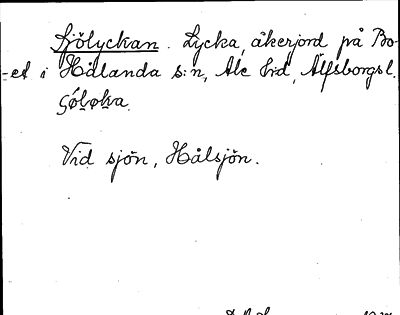 Sjölyckan. Lycka, åkerjord på Bo-
-et i Hålanda s:n, Ale h:d, Älfsborgs l.
Vid sjön, Hålsjön.